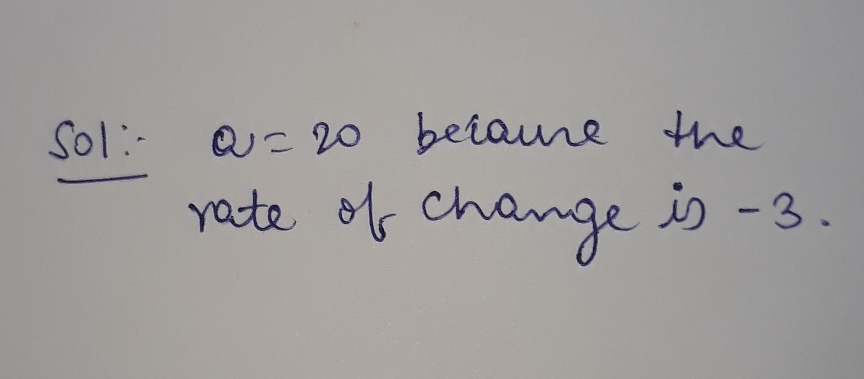 Sol:- a = 20 because the
rate of change is -3.